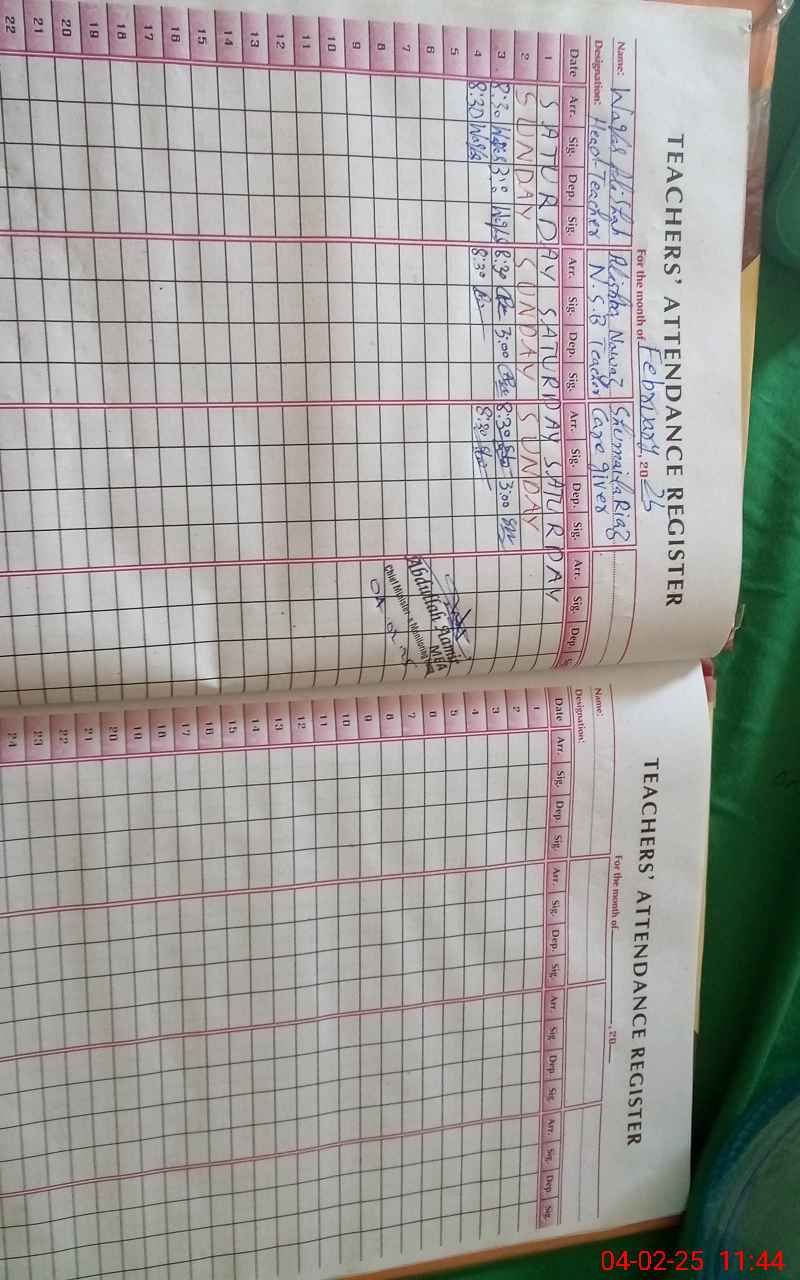 TEACHERS' ATTENDANCE REGISTER
For the month of February, 2025
Name: Waqas Ali Shah Alishba Nawaz Shumaila Riaz
Designation: Head Teacher N.S.B Teacher Care giver
Date Arr. Sig. Dep. Sig. Arr. Sig. Dep. Sig. Arr. Sig. Dep. Sig. Arr. Sig. Dep.
1 SATURDAY SATURDAY SATURDAY
2 SUNDAY SUNDAY SUNDAY
3 8:30 Waqas 3:00 Waqas 8:30 3:00 8:30 3:00
4 8:30 Waqas 8:30 8:30
5
6
7
8
9
10
11
12
13
14
15
16
17
18
19
20
21
22
Abdullah Aamir
MEA
04-02-25
TEACHERS' ATTENDANCE REGISTER
For the month of , 20
Name:
Designation:
Date Arr. Sig. Dep. Sig. Arr. Sig. Dep. Sig. Arr. Sig. Dep. Sig. Arr. Sig. Dep. Sig.
1
2
3
4
5
6
7
8
9
10
11
12
13
14
15
16
17
18
19
20
21
22
23
24
04-02-25 11:44